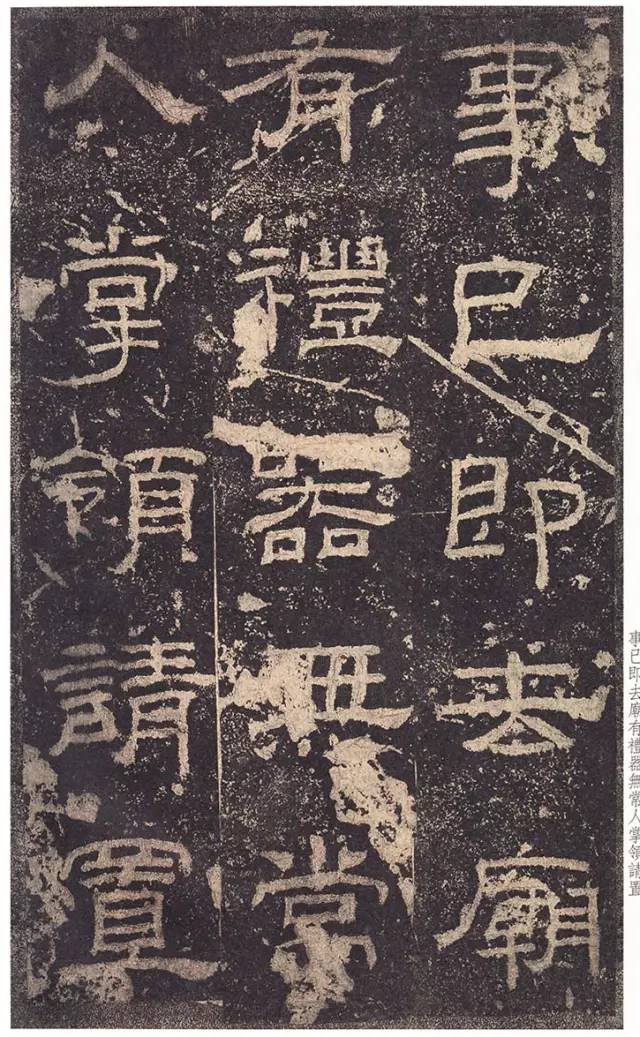 事已即去廟
有禮器無常
人掌領請置
事已即去廟有禮器無常人掌領請置